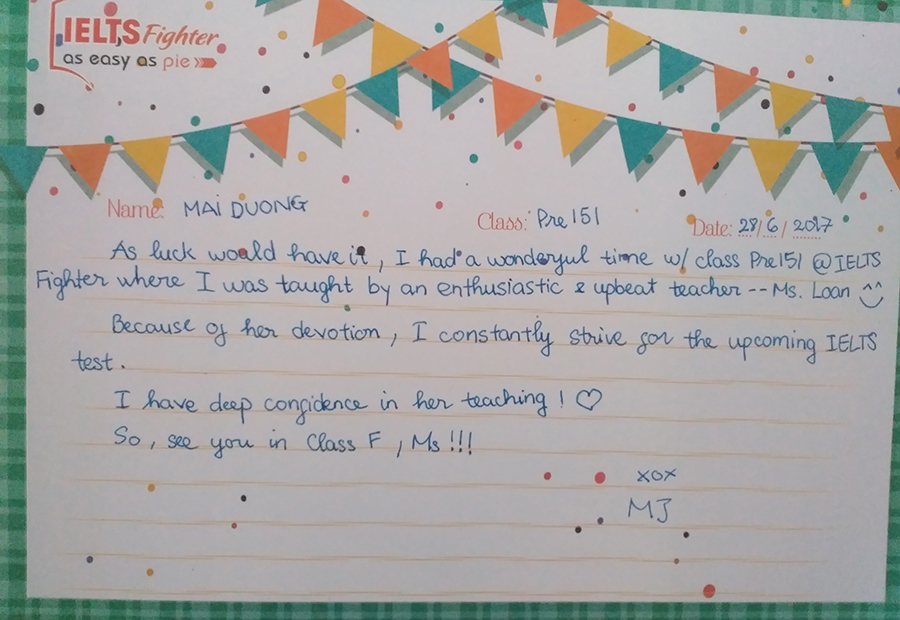 IELTS Fighter
as easy as pie
Name: MAI DUONG
Class: Pre 151
Date: 28/6/2017
As luck would have it, I had a wonderful time w/ class Pre151 @IELTS
Fighter where I was taught by an enthusiastic & upbeat teacher -- Ms. Loan ^^
Because of her devotion, I constantly strive for the upcoming IELTS
test.
I have deep confidence in her teaching! ♡
So, see you in Class F, Ms!!!
xox
MJ